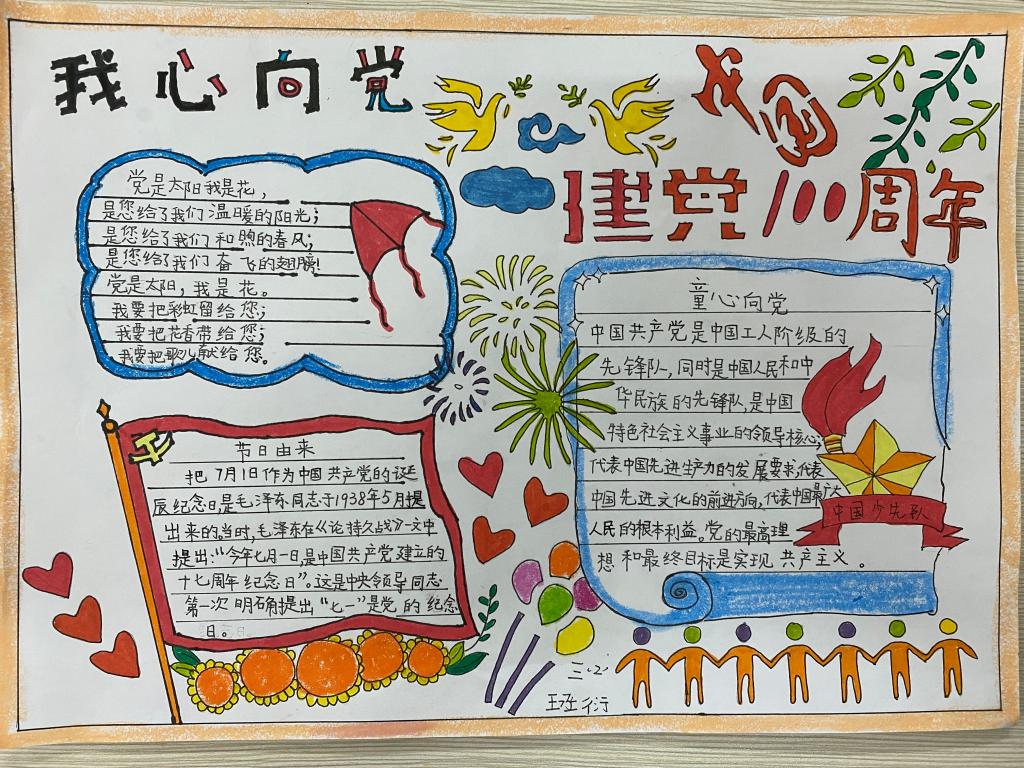 我心向党
我国
建党100周年
党是太阳我是花，
是您给了我们温暖的阳光；
是您给了我们和煦的春风；
是您给了我们奋飞的翅膀！
党是太阳，我是花。
我要把彩虹留给您；
我要把花香带给您；
我要把歌儿献给您。
童心向党
中国共产党是中国工人阶级的
先锋队，同时是中国人民和中
华民族的先锋队，是中国
特色社会主义事业的领导核心；
代表中国先进生产力的发展要求，代表
中国先进文化的前进方向，代表中国最广大
人民的根本利益。党的最高理
想和最终目标是实现共产主义。
中国少先队
节日由来
把7月1日作为中国共产党的诞
辰纪念日，是毛泽东同志于1938年5月提
出来的。当时，毛泽东在《论持久战》一文中
提出：“今年七月一日，是中国共产党建立的
十七周年纪念日”。这是中央领导同志
第一次明确提出“七一”是党的纪念
日。
三、2